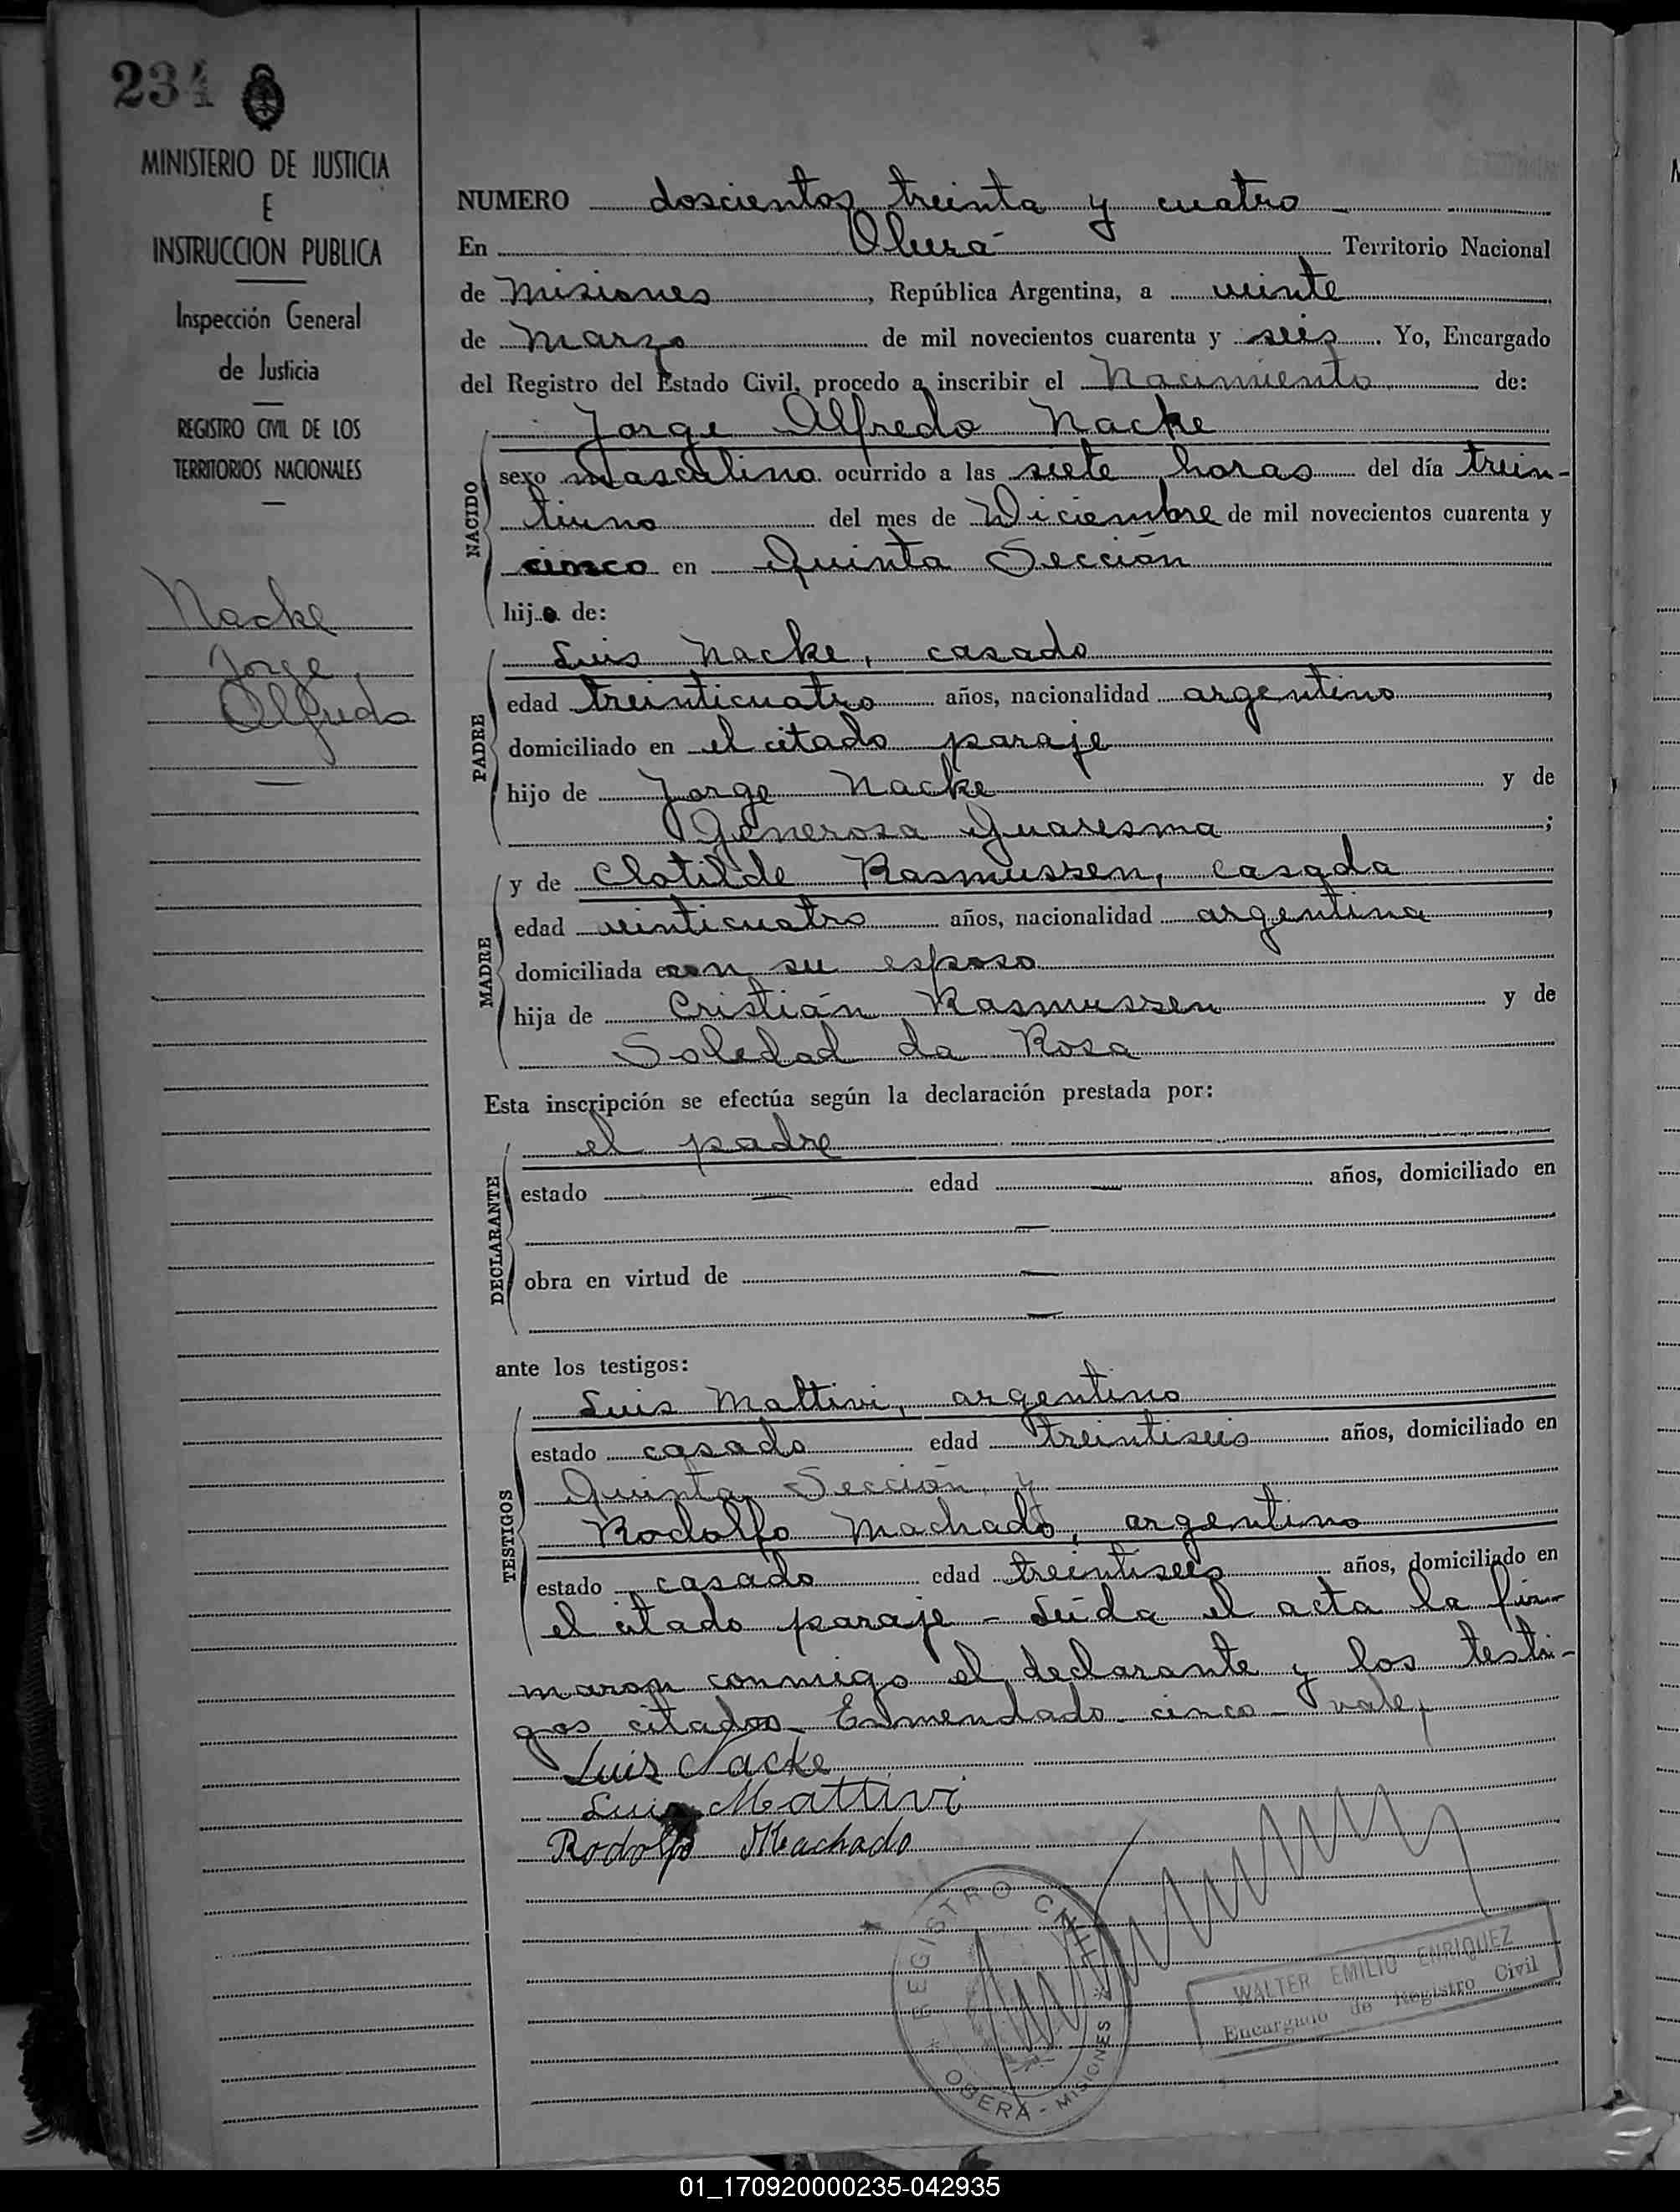 234
MINISTERIO DE JUSTICIA
E
INSTRUCCION PUBLICA
Inspección General
de Justicia
REGISTRO CIVIL DE LOS
TERRITORIOS NACIONALES
Nacke
Jorge
Alfredo
NUMERO doscientos treinta y cuatro
En Oberá Territorio Nacional
de Misiones, República Argentina, a veinte
de Marzo de mil novecientos cuarenta y seis. Yo, Encargado
del Registro del Estado Civil, procedo a inscribir el Nacimiento de:
Jorge Alfredo Nacke
NACIDO
sexo masculino ocurrido a las siete horas del día trein-
tiuno del mes de Diciembre de mil novecientos cuarenta y
cinco en Quinta Sección
hijo de:
PADRE
Luis Nacke, casado
edad treinticuatro años, nacionalidad argentino,
domiciliado en el citado paraje
hijo de Jorge Nacke y de
Generosa Guaresma;
MADRE
y de Clotilde Rasmussen, casada
edad veinticuatro años, nacionalidad argentina,
domiciliada con su esposo
hija de Cristián Rasmussen y de
Soledad da Rosa
Esta inscripción se efectúa según la declaración prestada por:
DECLARANTE
el padre
estado — edad — años, domiciliado en
—
obra en virtud de —
—
ante los testigos:
TESTIGOS
Luis Mattivi, argentino
estado casado edad treintiseis años, domiciliado en
Quinta Sección y
Rodolfo Machado, argentino
estado casado edad treintiseis años, domiciliado en
el citado paraje - Leída el acta la fir-
maron conmigo el declarante y los testi-
gos citados - Enmendado - cinco - vale,
Luis Nacke
Luis Mattivi
Rodolfo Machado
REGISTRO CIVIL
OBERA - MISIONES
WALTER EMILIO ENRIQUEZ
Encargado de Registro Civil
01_170920000235-042935